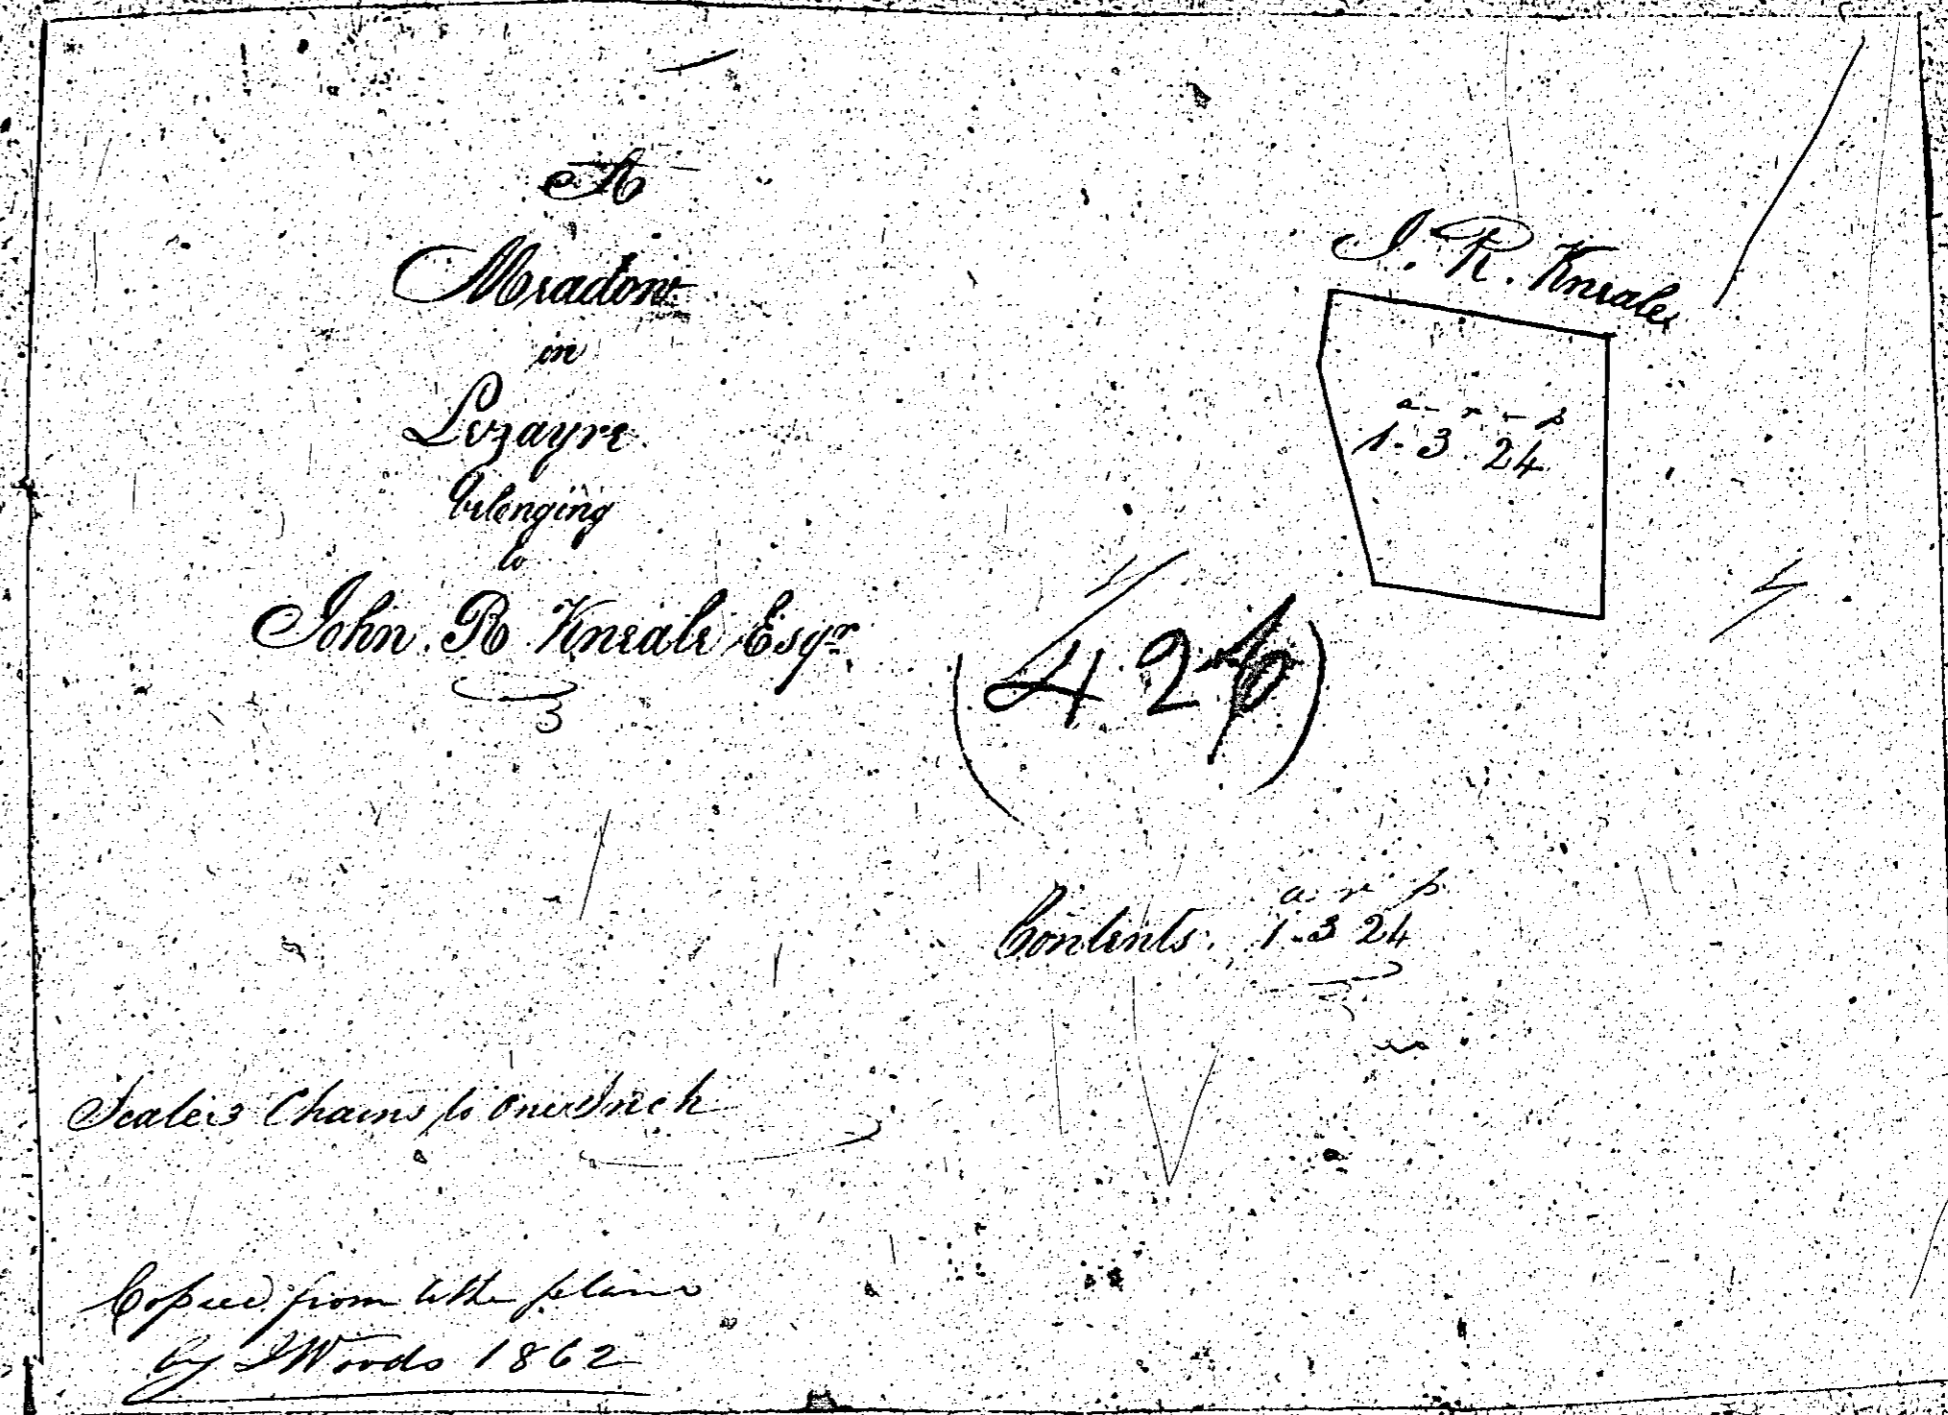 A
Meadow
in
Lezayre
belonging
to
John. R Kneale Esqr.
J. R. Kneales
a - r - p
1 - 3 . 24
Contents. a. r p
1 - 3 24
Scale 3 Chains to One Inch
Copied from tithe plans
by J Woods 1862